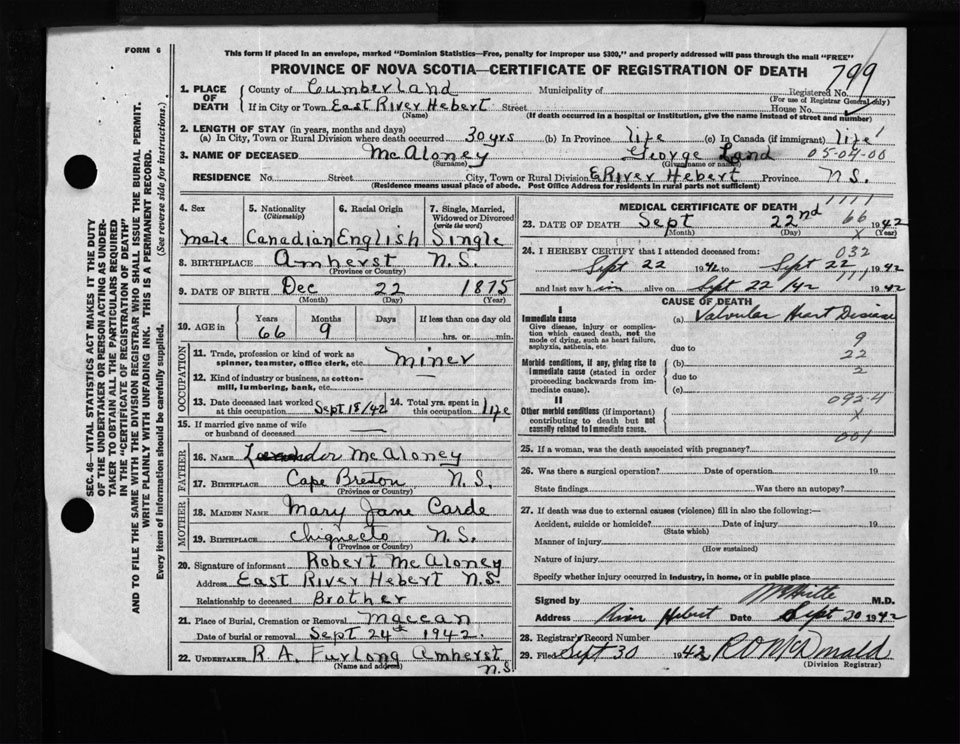 FORM 6
This form if placed in an envelope, marked "Dominion Statistics—Free, penalty for improper use $300," and properly addressed will pass through the mail "FREE"
PROVINCE OF NOVA SCOTIA—CERTIFICATE OF REGISTRATION OF DEATH
799
SEC. 46—VITAL STATISTICS ACT MAKES IT THE DUTY
OF THE UNDERTAKER OR PERSON ACTING AS UNDER-
TAKER TO OBTAIN ALL THE PARTICULARS REQUIRED
IN THE "CERTIFICATE OF REGISTRATION OF DEATH"
AND TO FILE THE SAME WITH THE DIVISION REGISTRAR WHO SHALL ISSUE THE BURIAL PERMIT.
WRITE PLAINLY WITH UNFADING INK. THIS IS A PERMANENT RECORD.
Every item of information should be carefully supplied. (See reverse side for instructions.)
1. PLACE OF DEATH County of Cumberland Municipality of Registered No.
(For use of Registrar General only)
If in City or Town East River Hebert Street House No.
(Name) (If death occurred in a hospital or institution, give the name instead of street and number)
2. LENGTH OF STAY (in years, months and days)
(a) In City, Town or Rural Division where death occurred 30 yrs (b) In Province life (c) In Canada (if immigrant) life
3. NAME OF DECEASED McAloney George Land 05-04-00
(Surname) (Given name or names)
RESIDENCE No. Street City, Town or Rural Division E River Hebert Province N.S.
(Residence means usual place of abode. Post Office Address for residents in rural parts not sufficient)
4. Sex 5. Nationality (Citizenship) 6. Racial Origin 7. Single, Married, Widowed or Divorced (write the word)
male Canadian English Single
8. BIRTHPLACE Amherst N.S.
(Province or Country)
9. DATE OF BIRTH Dec 22 1875
(Month) (Day) (Year)
10. AGE in Years Months Days If less than one day old
66 9 hrs. or min.
OCCUPATION
11. Trade, profession or kind of work as spinner, teamster, office clerk, etc. miner
12. Kind of industry or business, as cotton-mill, lumbering, bank, etc. —
13. Date deceased last worked at this occupation Sept 18/42 14. Total yrs. spent in this occupation life
15. If married give name of wife or husband of deceased —
FATHER
16. NAME McAloney
17. BIRTHPLACE Cape Breton N.S.
(Province or Country)
MOTHER
18. MAIDEN NAME Mary Jane Carde
19. BIRTHPLACE Chignecto N.S.
(Province or Country)
20. Signature of informant Robert McAloney
Address East River Hebert N.S.
Relationship to deceased Brother
21. Place of Burial, Cremation or Removal Maccan
Date of burial or removal Sept 24th 1942.
22. UNDERTAKER R.A. Furlong Amherst
(Name and address) N.S.
MEDICAL CERTIFICATE OF DEATH
23. DATE OF DEATH Sept 22nd 66 1942
(Month) (Day) x (Year)
24. I HEREBY CERTIFY that I attended deceased from: 032
Sept 22 1942 to Sept 22 1942
and last saw him alive on Sept 22/42 1942
CAUSE OF DEATH
Immediate cause (a) Valvular Heart Disease
Give disease, injury or complica-
tion which caused death, not the
mode of dying, such as heart failure,
asphyxia, asthenia, etc. due to 9
22
Morbid conditions, if any, giving rise to (b) 2
immediate cause (stated in order due to
proceeding backwards from im-
mediate cause). (c)
092-4
II
Other morbid conditions (if important) x
contributing to death but not
causally related to immediate cause. 001
25. If a woman, was the death associated with pregnancy?
26. Was there a surgical operation? Date of operation 19
State findings Was there an autopsy?
27. If death was due to external causes (violence) fill in also the following:—
Accident, suicide or homicide? Date of injury 19
(State which)
Manner of injury
(How sustained)
Nature of injury
Specify whether injury occurred in industry, in home, or in public place
Signed by M.D.
Address River Hebert Date Sept 30 1942
28. Registrar's Record Number
29. Filed Sept 30 1942 R O McDonald
(Division Registrar)